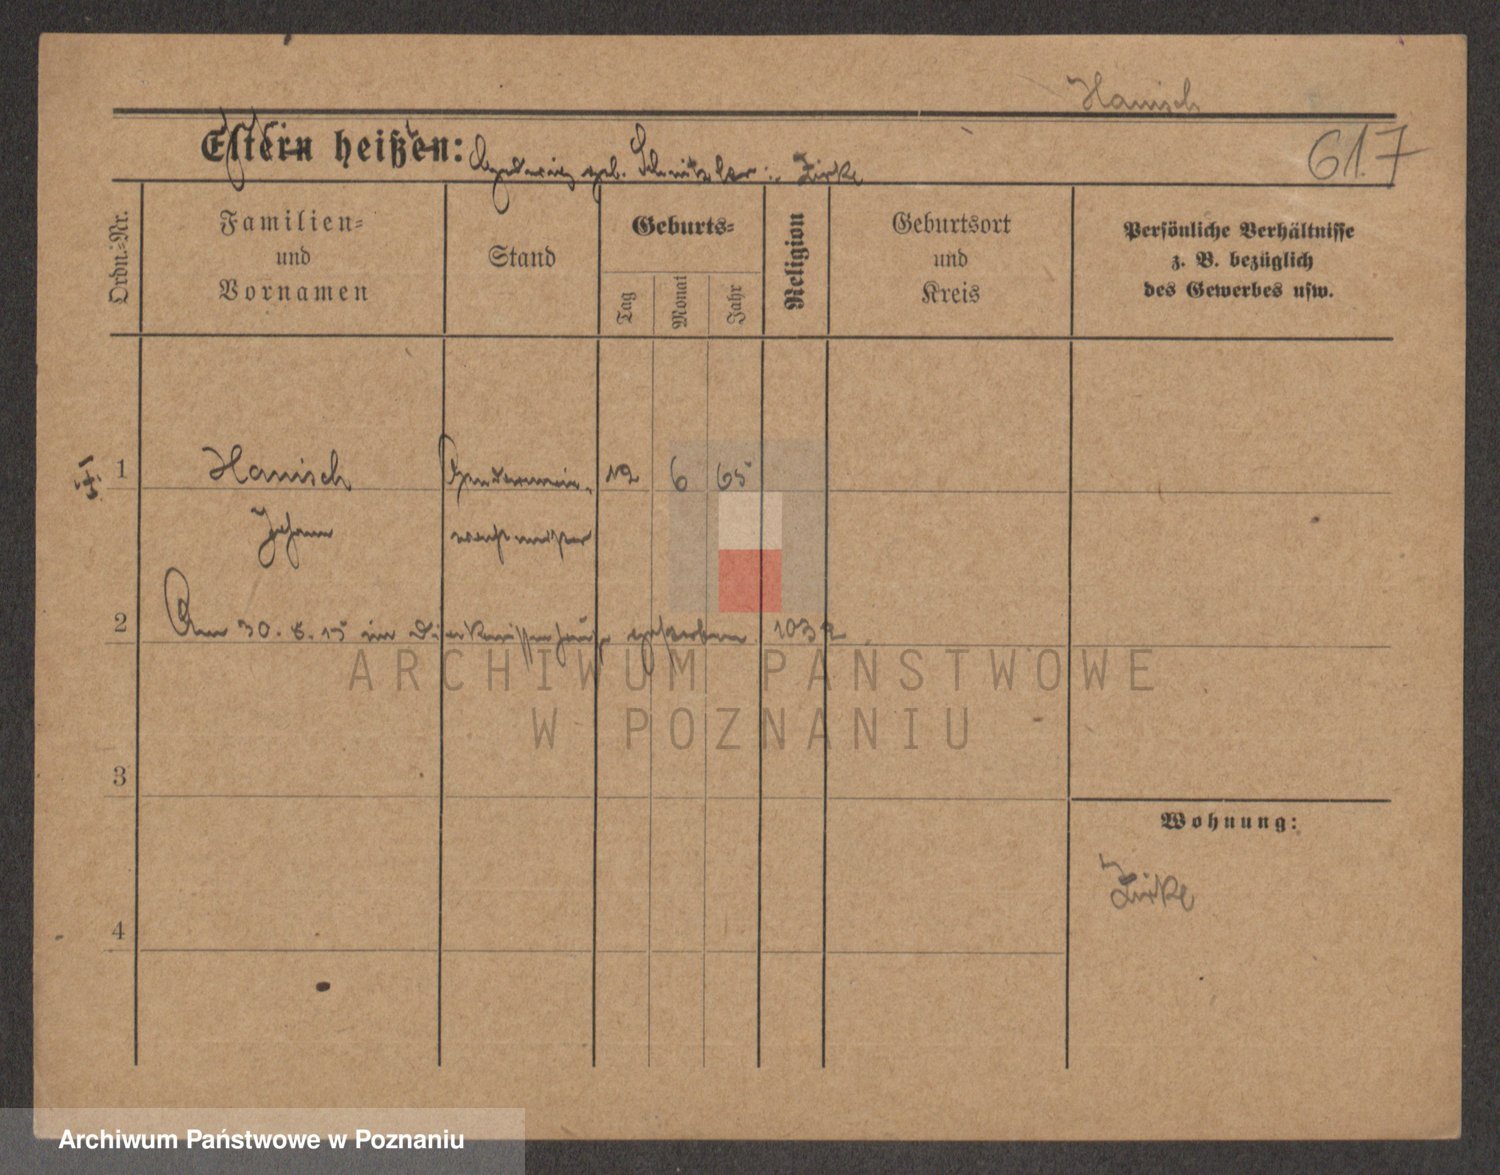 Hanisch
617
Eltern heißen: Hedwig geb. Schnitzler in Zirke
Ordn.-Nr.
Familien-
und
Vornamen
Stand
Geburts-
Tag
Monat
Jahr
Religion
Geburtsort
und
Kreis
Persönliche Verhältnisse
z. B. bezüglich
des Gewerbes usw.
1 Hanisch Gendarmerie- 12 6 65
Johann wachtmeister
2 Am 30. 8. 15 im Diakonissenhause gestorben
3
4
Wohnung:
Zirke
ARCHIWUM PAŃSTWOWE
W POZNANIU
Archiwum Państwowe w Poznaniu